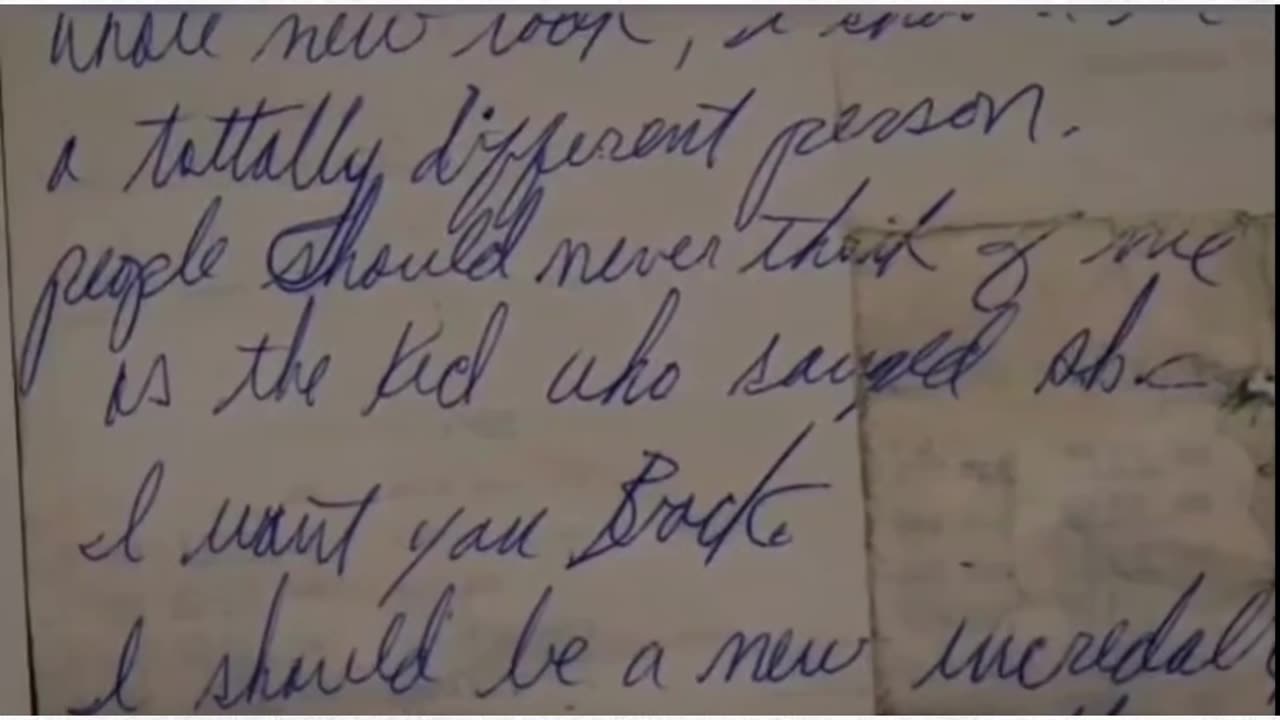 whole new look, I
a tottally different person.
people should never think of me
as the kid who sanged abc
I want you Back
I should be a new incredabl